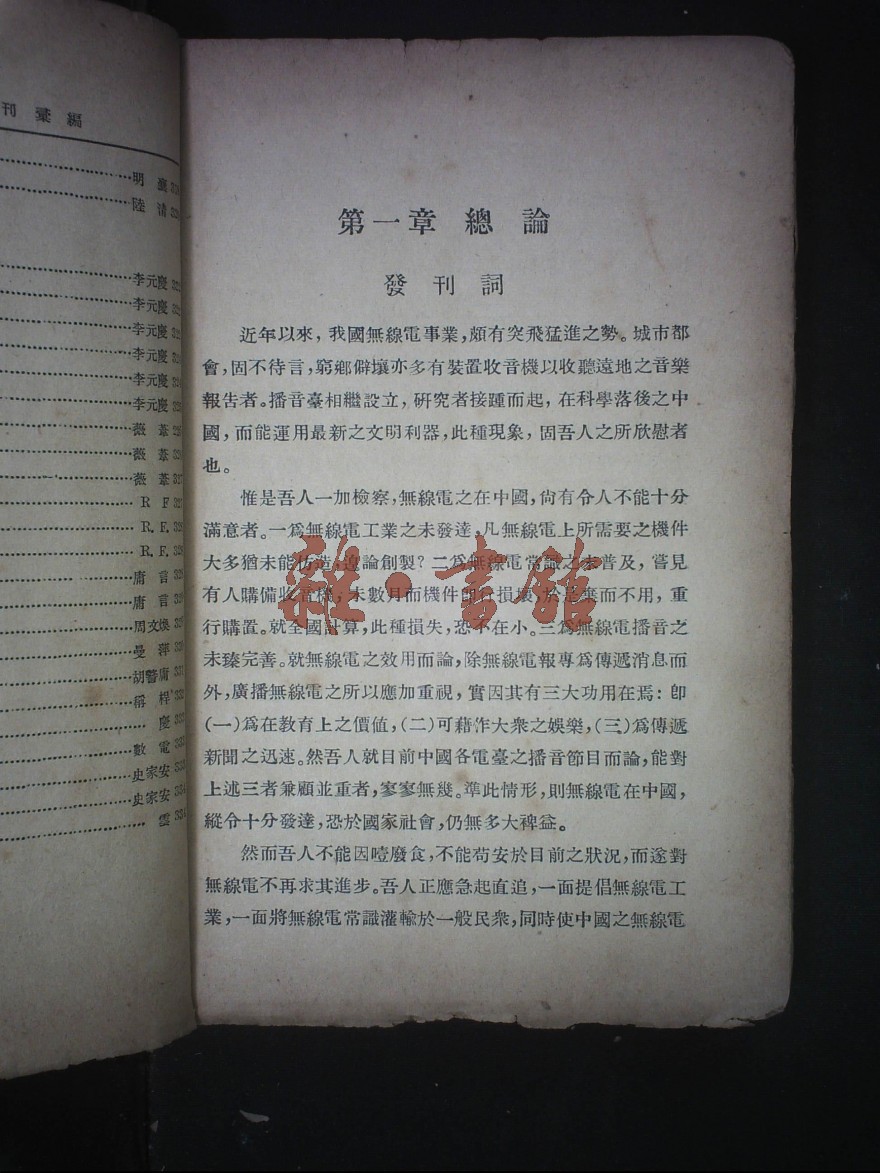 刊 彙 編
明
陸 清
李元慶
李元慶
李元慶
李元慶
李元慶
李元慶
薇 葦
薇 葦
薇 葦
R F
R. F.
R. F.
庸 言
庸 言
周文煥
曼 萍
胡聲庸
稱 桿
慶
數 電
史家安
史家安
雲
第一章 總 論
發 刊 詞
近年以來，我國無線電事業，頗有突飛猛進之勢。城市都
會，固不待言，窮鄉僻壤亦多有裝置收音機以收聽遠地之音樂
報吿者。播音臺相繼設立，研究者接踵而起，在科學落後之中
國，而能運用最新之文明利器，此種現象，固吾人之所欣慰者
也。
惟是吾人一加檢察，無線電之在中國，尙有令人不能十分
滿意者。一爲無線電工業之未發達，凡無線電上所需要之機件
大多猶未能仿造，遑論創製？二爲無線電常識之未普及，嘗見
有人購備收音機，未數月而機件卽行損壞，於是棄而不用，重
行購置。就全國計算，此種損失，恐不在小。三爲無線電播音之
未臻完善。就無線電之效用而論，除無線電報專爲傳遞消息而
外，廣播無線電之所以應加重視，實因其有三大功用在焉：卽
(一)爲在敎育上之價値，(二)可藉作大衆之娛樂，(三)爲傳遞
新聞之迅速。然吾人就目前中國各電臺之播音節目而論，能對
上述三者兼顧並重者，寥寥無幾。準此情形，則無線電在中國，
縱令十分發達，恐於國家社會，仍無多大裨益。
然而吾人不能因噎廢食，不能苟安於目前之狀況，而遂對
無線電不再求其進步。吾人正應急起直追，一面提倡無線電工
業，一面將無線電常識灌輸於一般民衆，同時使中國之無線電
雜·書館